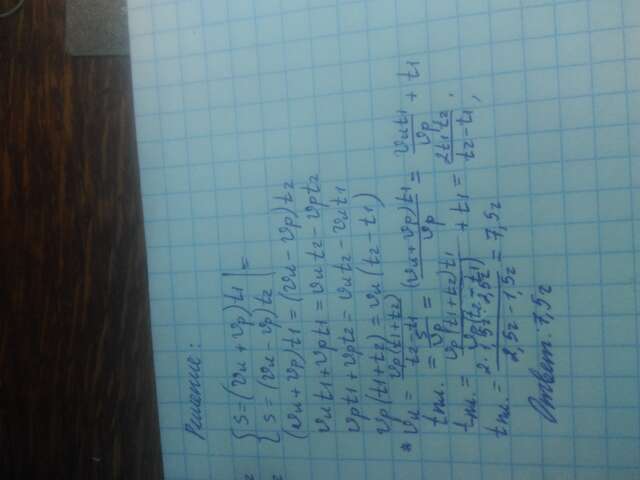 Решение:
{ S = (vл + vр) t1 | =
{ S = (vл - vр) t2 |
(vл + vр) t1 = (vл - vр) t2
vл t1 + vр t1 = vл t2 - vр t2
vр t1 + vр t2 = vл t2 - vл t1
vр (t1 + t2) = vл (t2 - t1)
* vл = vр(t1 + t2) / t2 - t1
tпл. = S / vр = (vл + vр) t1 / vр = vл t1 / vр + t1
tпл. = vр (t1 + t2) t1 / vр (t2 - t1) + t1 = 2 t1 t2 / t2 - t1 ;
tпл. = 2 · 1,5г · 2,5г / 2,5г - 1,5г = 7,5г
Ответ: 7,5г